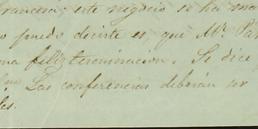 francesa; este negocio se ha
puedo decirte es, que Mr. Par
na feliz terminacion. Se dice
Las conferencias deberán ser
les.